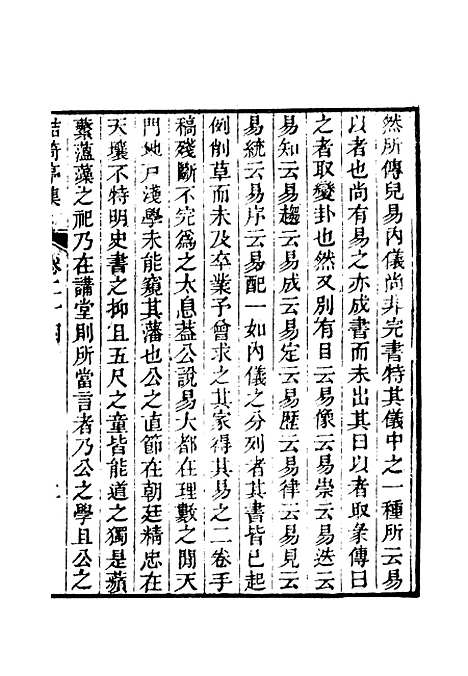 然所傳兒易內儀尚非完書特其儀中之一種所云易
以者也尚有易之亦成書而未出其曰以者取彖傳曰
之者取變卦也然又別有目云易像云易崇云易迭云
易知云易趨云易成云易定云易歷云易律云易見云
易統云易序云易配一如內儀之分列者其書皆已起
例削草而未及卒業予曾求之其家得其易之二卷手
稿殘斷不完為之太息益公說易大都在理數之間天
門地戸淺學未能窺其藩也公之直節在朝廷精忠在
天壤不特明史書之抑且五尺之童皆能道之獨是蘋
蘩薀藻之祀乃在講堂則所當言者乃公之學且公之
鮚埼亭集 卷二十四